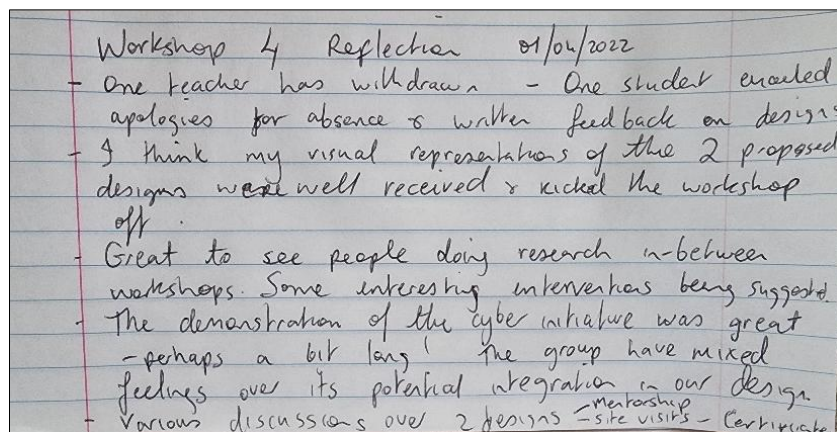 Workshop 4 Reflection 01/04/2022
- One teacher has withdrawn - One student emailed
apologies for absence & written feedback on designs
- I think my visual representations of the 2 proposed
designs were well received & kicked the workshop
off.
- Great to see people doing research in-between
workshops. Some interesting interventions being suggested
- The demonstration of the cyber initiative was great
- perhaps a bit long! The group have mixed
feelings over its potential integration in our design.
- Various discussions over 2 designs - Mentorship
- site visits - Certificate